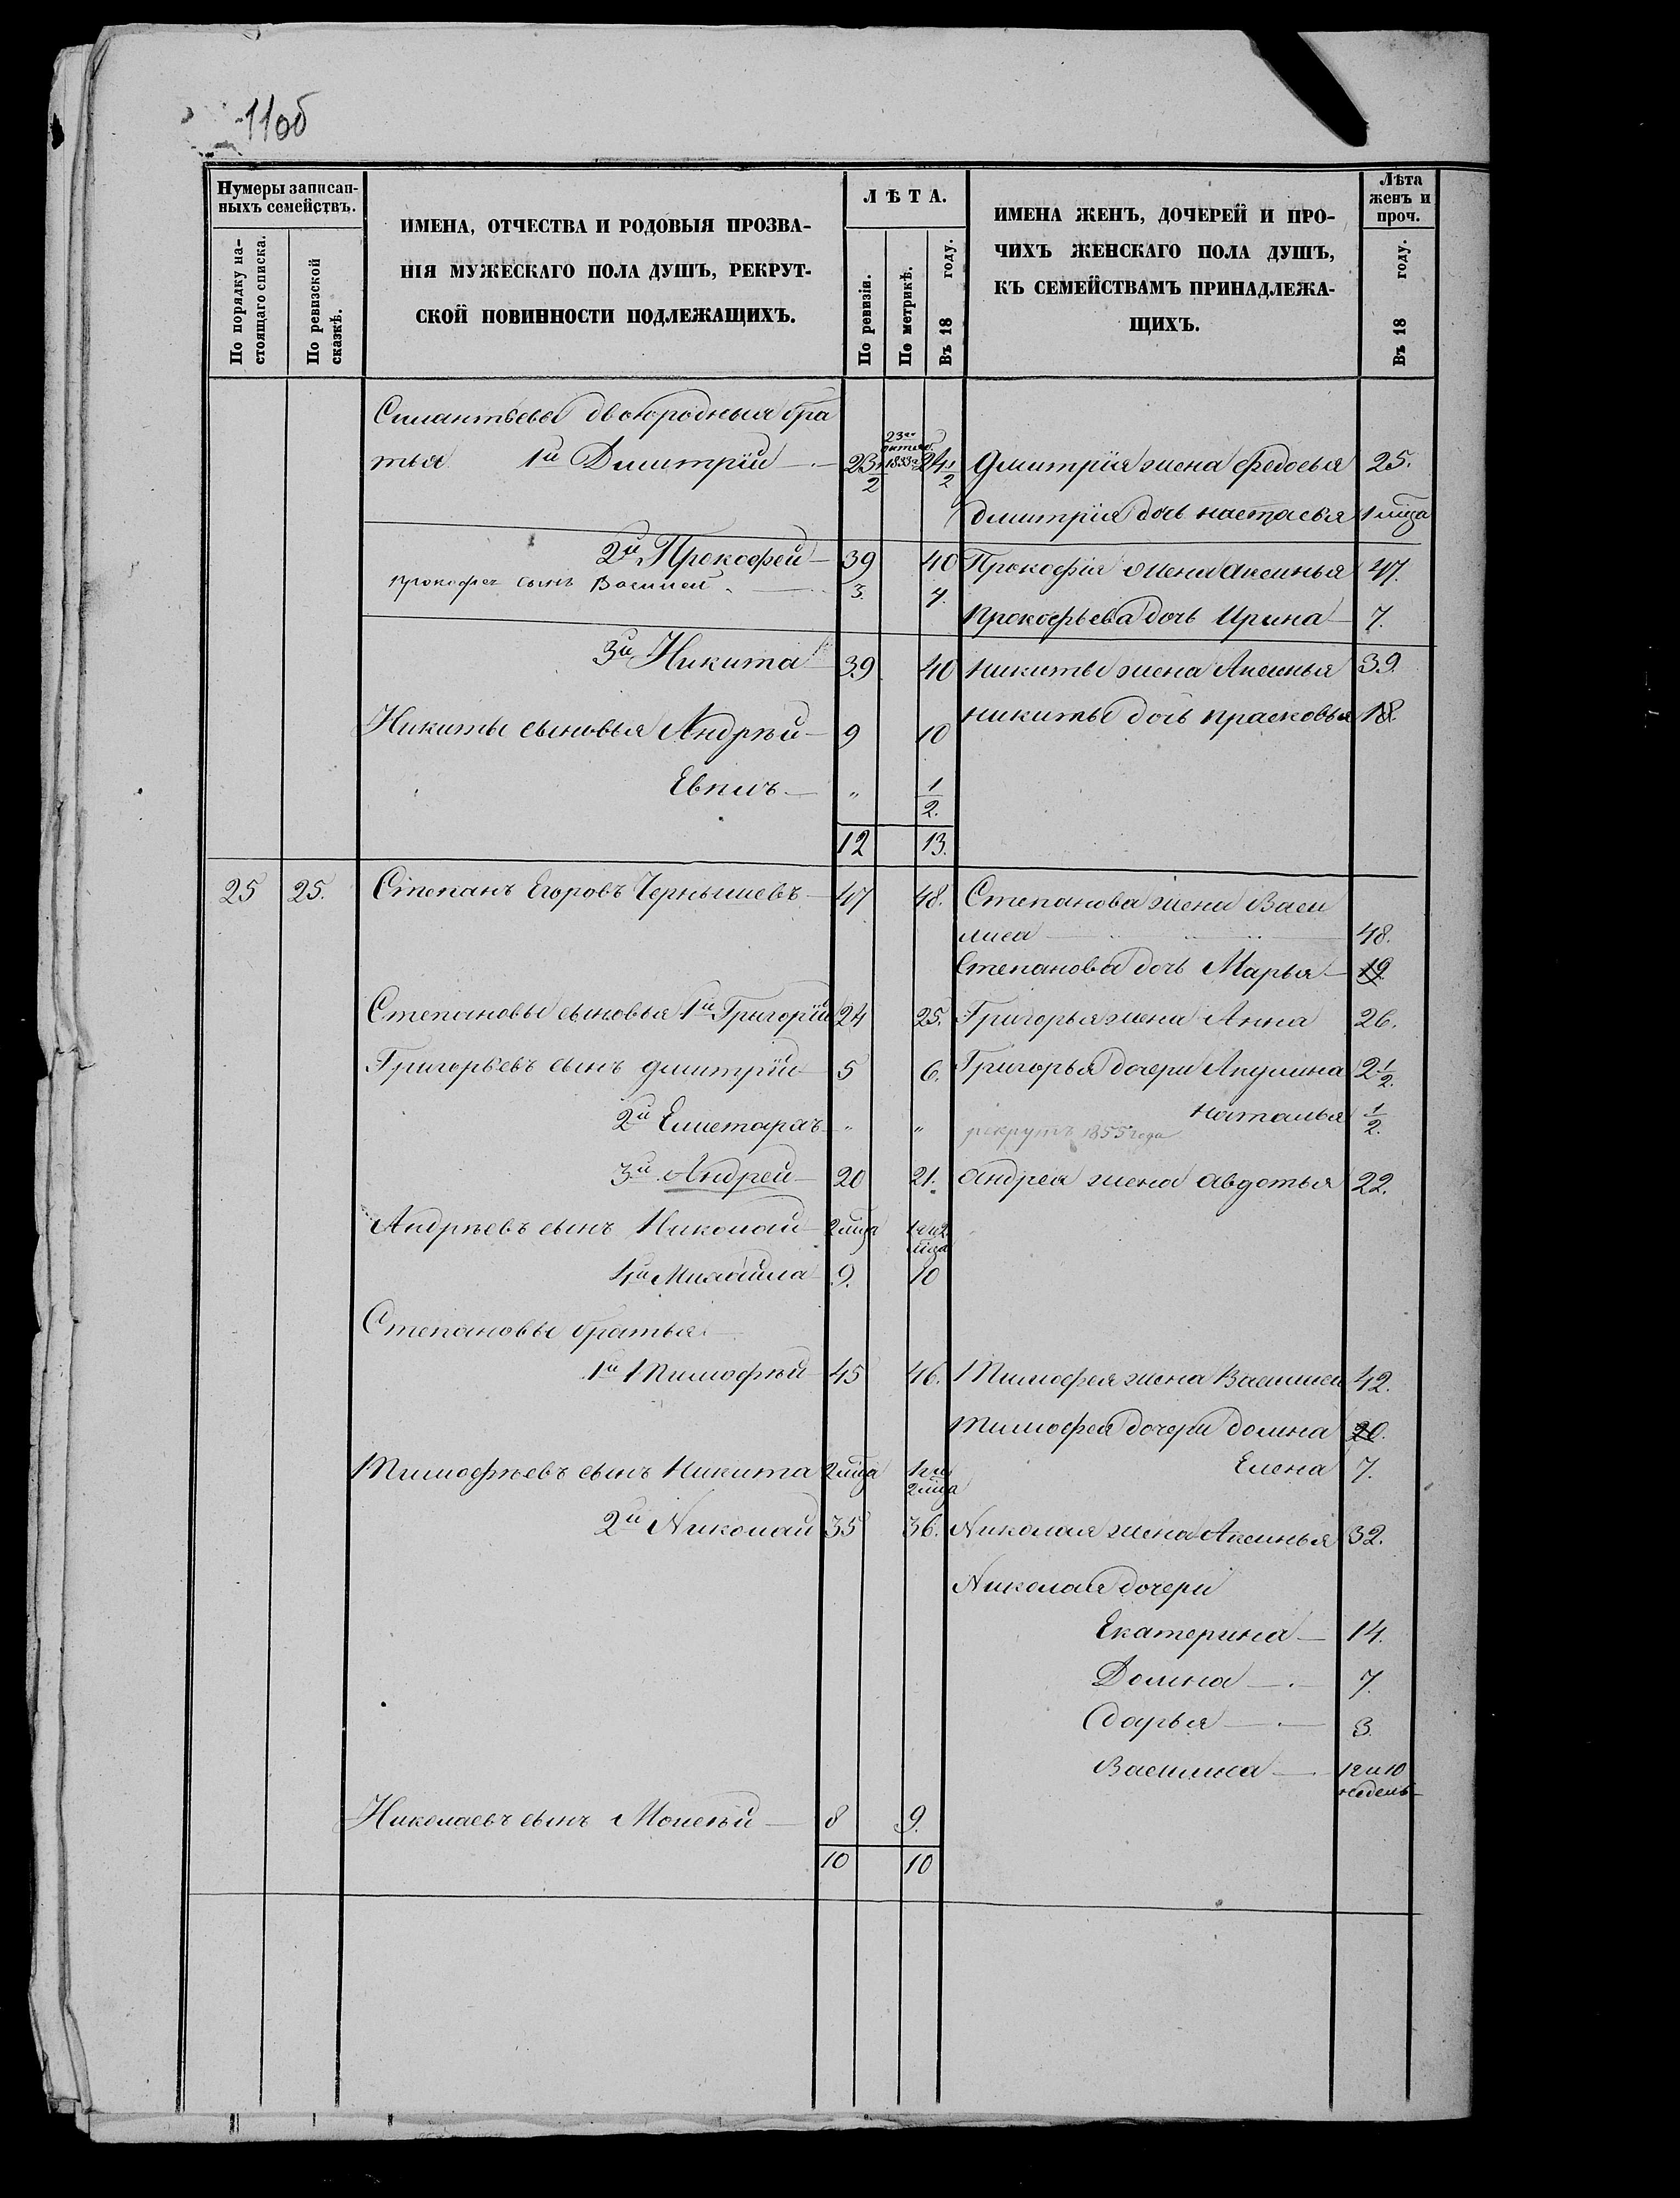 11об
Нумеры записан-
ныхъ семействъ.
По порядку на-
стоящаго списка.
По ревизской
сказкѣ.
ИМЕНА, ОТЧЕСТВА И РОДОВЫЯ ПРОЗВА-
НІЯ МУЖЕСКАГО ПОЛА ДУШЪ, РЕКРУТ-
СКОЙ ПОВИННОСТИ ПОДЛЕЖАЩИХЪ.
ЛѢТА.
По ревизіи.
По метрикѣ.
Въ 18 году.
ИМЕНА ЖЕНЪ, ДОЧЕРЕЙ И ПРО-
ЧИХЪ ЖЕНСКАГО ПОЛА ДУШЪ,
КЪ СЕМЕЙСТВАМЪ ПРИНАДЛЕЖА-
ЩИХЪ.
Лѣта
женъ и
проч.
Въ 18 году.
двоюродныя бра
тья 1й Дмитрій 23 1/2 23го 1833 24 1/2 Дмитрія жена Федосья 25.
Дмитрія дочь Настасья 1 мца
2й Прокофей 39 40 Прокофія жена Аксинья 47.
Прокофея сынъ Василей 3. 4.
Прокофьева дочь Ирина 7.
3й Никита 39 40 Никиты жена Аксинья 39.
Никиты сыновья Андрѣй 9 10 Никиты дочь Прасковья 18.
" 1/2.
12 13.
25 25. Степанъ Егоровъ Чернышевъ 47 48. Степанова жена Васи
лиса 48.
Степанова дочь Марья 19.
Степановы сыновья 1й Григорій 24 25. Григорья жена Анна 26.
Григорьевъ сынъ Дмитрій 5 6. Григорья дочери Акулина 2 1/2.
2й " " рекрутъ 1855 года Наталья 1/2.
3й Андрей 20 21. Андрея жена Авдотья 22.
Андрѣевъ сынъ Николай 2 мца 1 г и 2 мца
4й Михайла 9. 10
Степановы братья
1й Тимофѣй 45 46. Тимофея жена 42.
Тимофея дочери Домна 20.
Тимофѣевъ сынъ Никита 2 мца 1 г и 2 мца Елена 7.
2й Николай 35 36. Николая жена Аксинья 32.
Николая дочери
Екатерина 14.
Домна 7.
Дарья 3.
Василиса 1 г и 10
недель
Николаевъ сынъ Моисѣй 8 9.
10 10